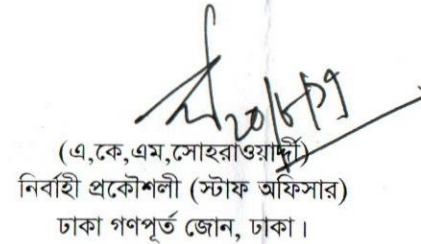 ২০/৮/১৭
(এ,কে,এম,সোহরাওয়ার্দ্দী)
নির্বাহী প্রকৌশলী (স্টাফ অফিসার)
ঢাকা গণপূর্ত জোন, ঢাকা।